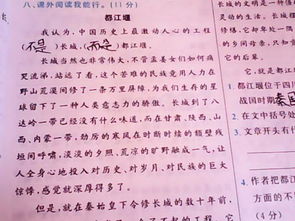 八、课外阅读我能行。(11分)
都江堰
我认为,中国历史上最激动人心的工程
(不是)长城,(而是)都江堰。
长城当然也非常伟大,不管孟姜女们如何痛
哭流涕,站远了看,这个苦难的民族竟用人力在
野山荒漠间修了一条万里屏障,为我们生存的星
球留下了一种人类意志力的骄傲。长城到了八
达岭一带已经没有什么味道,而在甘肃、陕西、山
西、内蒙一带,劲厉的寒风在时断时续的颓壁残
垣间呼啸,淡淡的夕照、荒凉的旷野融成一气,让
人全身心地投入对历史、对岁月、对民族的巨大
惊悸,感觉就深厚得多了。
但是,就在秦始皇下令修长城的数十年前,
长城的文明是一种僵
灵动的生活。长城摆
它却卑处一隅,
的乡间母亲,只知
它的后辈。
它,就是都江
1.都江堰位于四川
战国时期秦国
2.在文中括号处
3.文章开头有什
4.作者把都江
方面的不